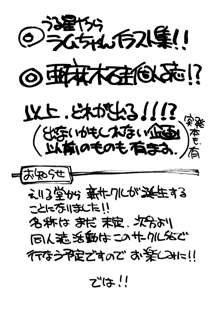 ◎うる星やつら
ラムちゃんイラスト集!!
◎亜麻木硅個人誌!?
以上、どれが出る!!!?
(出ないかもしれない企画
以前のものも有ます。)
突発本も有
お知らせ
えりる堂から新サークルが誕生する
ことになりました!!
名称はまだ未定、次分より
同人誌活動はこのサークル名で
行なう予定ですのでお楽しみに!!
では!!